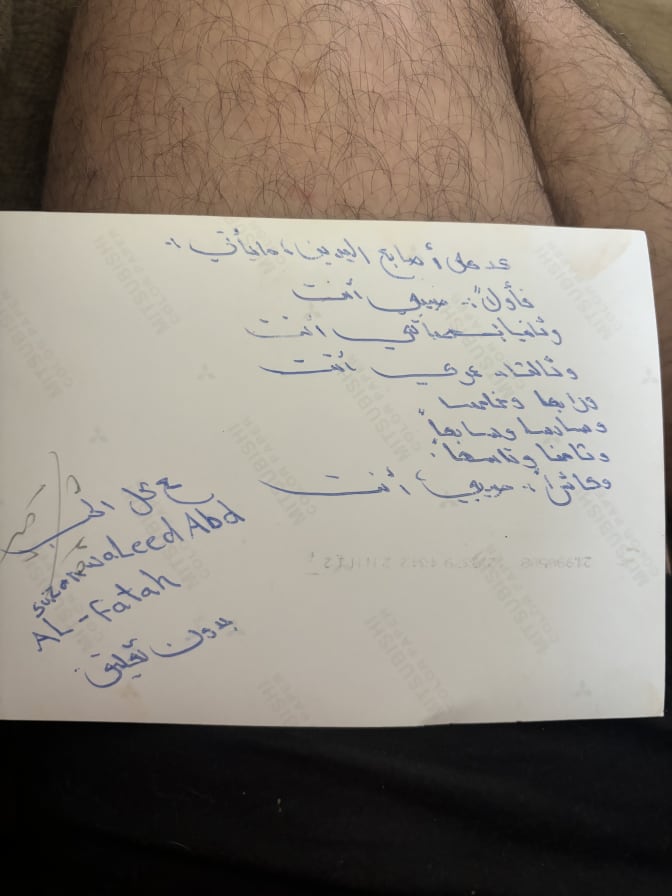 عد على أصابع اليدين، ما يأتي :-
فأولاً :- حبيبي أنت
وثانيا :- حياتي أنت
وثالثا :- عمري أنت
ورابعا وخامسا
وسادسا وسابعاً
وثامنا وتاسعاً :
وعاشراً :- حبيبي أنت
مع كل الحب
suzan waleed Abd
AL-Fatah
بدون تعليق
MITSUBISHI
COLOR PAPER